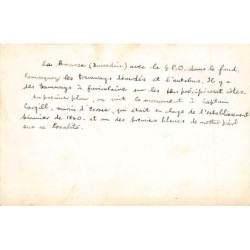 La Bourse (Dunedin) avec le G.P.O. dans le fond.
Remarquez les Tramways bondés et l'autobus. Il y a
des tramways à funiculaire sur les plus précipitent côtes.
Au premier plan, on voit le monument à Captain
Cargill, marin d'Ecosse, qui était en charge de l'établissement
de 1840. et un des premiers blancs de mettre pied
sur ce localité.